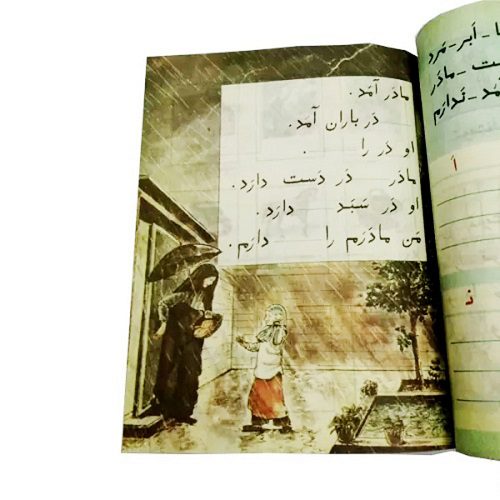 مادَر آمَد.
دَر باران آمَد.
او دَر را .
مادَر دَر دَست دارَد.
او دَر سَبَد دارَد.
مَن مادَرَم را دارَم.
ا - اَبر - مَرد
ست - مادَر
مَد - نَدارَم
اَ